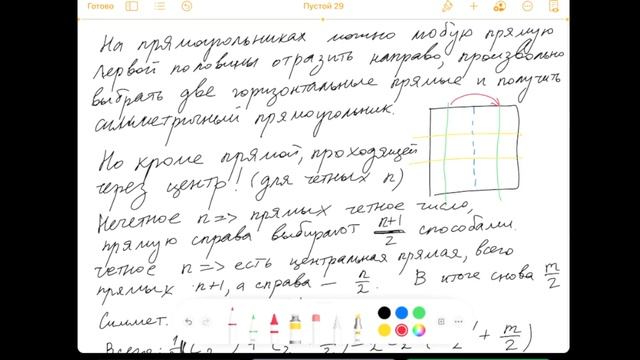 Готово
Пустой 29
На прямоугольниках можно любую прямую
первой половины отразить направо, произвольно
выбрать две горизонтальные прямые и получить
симметричный прямоугольник.
Но кроме прямой, проходящей
через центр! (для четных n)
Нечетное n => прямых четное число,
прямую справа выбирают n+1/2 способами.
четное n => есть центральная прямая, всего
прямых n+1, а справа – n/2. В итоге снова m/2
Симмет.
Всего: